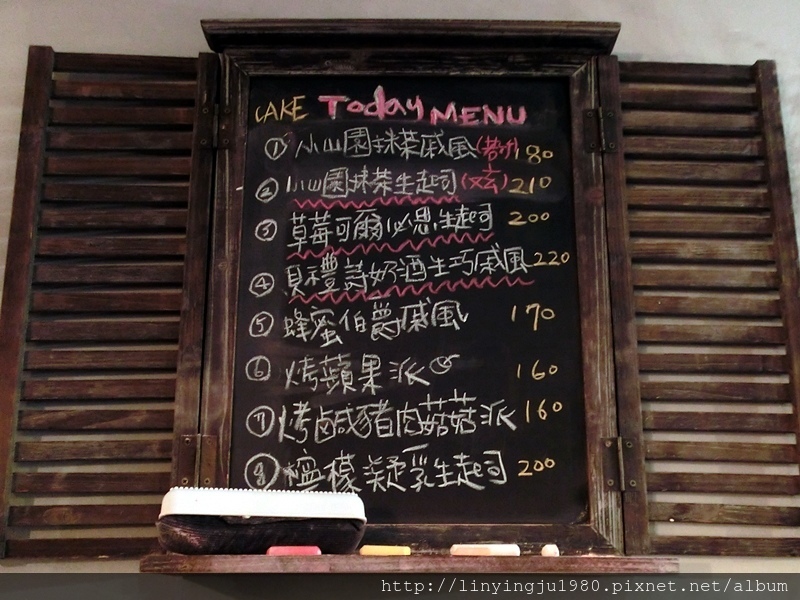 CAKE Today MENU
① 小山園抹茶戚風 180
② 小山園抹茶生起司(玄) 210
③ 草莓可爾必思生起司 200
④ 貝禮詩奶酒生巧戚風 220
⑤ 蜂蜜伯爵戚風 170
⑥ 烤蘋果派 160
⑦ 烤鹹豬肉菇菇派 160
⑧ 檸檬凝乳生起司 200
http://linyingju1980.pixnet.net/album